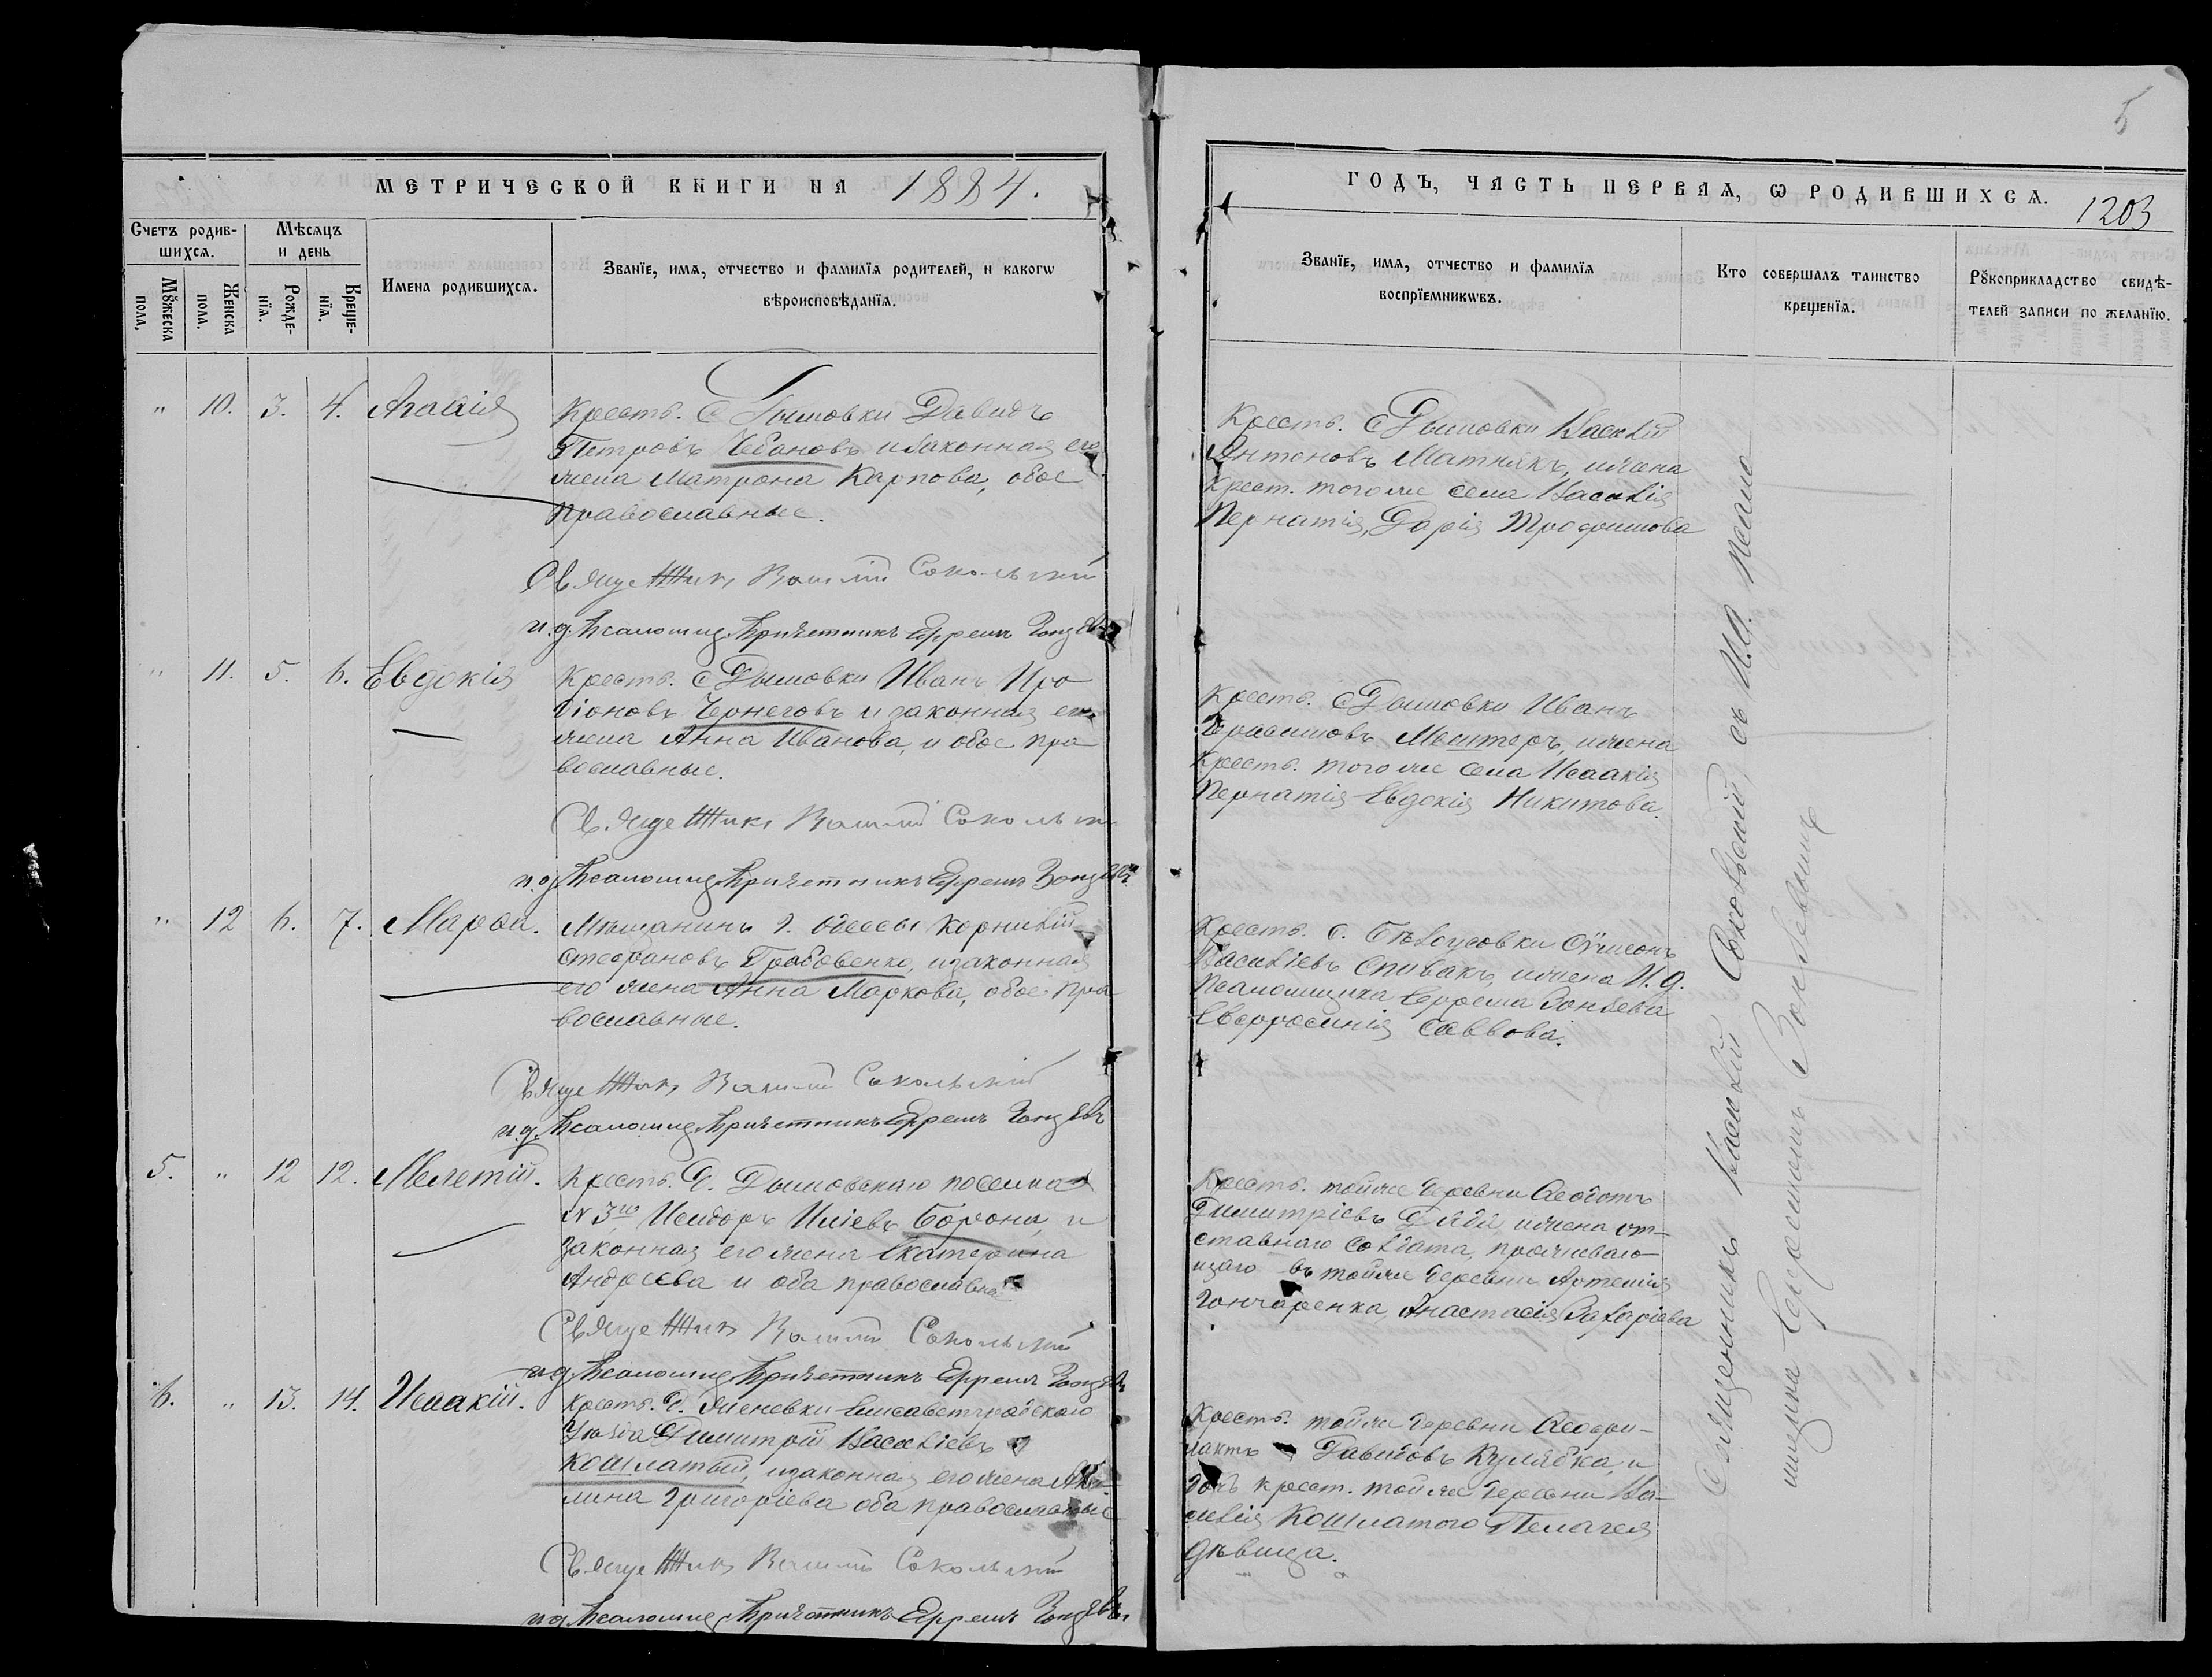 5
МЕТРИЧЕСКОЙ КНИГИ НА 1884.
ГОДЪ, ЧАСТЬ ПЕРВАѦ, Ѡ РОДИВШИХСѦ.
1203
Счетъ родив-
шихсѧ.
Мѣсѧцъ
и день
Мꙋжеска
пола.
Женска
пола.
Рожде-
нїѧ.
Креще-
нїѧ.
Имена родившихсѧ.
Званїе, имѧ, отчество и фамилїѧ родителей, и какогѡ
вѣроисповѣданїѧ.
Званїе, имѧ, отчество и фамилїѧ
воспрїемникѡвъ.
Кто совершалъ таинство
крещенїѧ.
Рꙋкоприкладство свидѣ-
телей записи по желанїю.
" 10. 3. 4. Агафія
Крестъ. с Дымовки Давидъ
Петровъ Чебановъ и законная его
жена Матрона Карпова, обое
православные.
Священникъ Василій Сокольскій
и. д. Псаломщ. Причетникъ Ефремъ
Крестъ. с Дымовки Василій
Антоновъ Матнякъ, и жена
Крест. того же села Василія
Пернатія, Дарія Трофимова
" 11. 5. 6. Евдокія
Крестъ. с Дымовки Иванъ Иро
діоновъ Чернеговъ и законная его
жена Анна Иванова, и обое пра
вославные.
Священникъ Василій Сокольскій
и. д. Псаломщ. Причетникъ Ефремъ
Крестъ. с Дымовки Иванъ
Герасимовъ Мештеръ, и жена
Крестъ. того же села Исаакія
Пернатія Евдокія Никитова.
" 12 6. 7. Марфа.
Мѣщанинъ г. Одессы Корнилій
Стефановъ Грабовенко, и законная
его жена Анна Маркова, обое пра
вославные.
Священникъ Василій Сокольскій
и. д. Псаломщ. Причетникъ Ефремъ
Крестъ. с. Бѣлоусовки Сѵмеонъ
Василіевъ Спивакъ, и жена И. д.
Псаломщика Ефрема
Евфросинія Саввова.
5. " 12 12. Мелетій.
Крестъ. д. Дымовскаго поселка
N 3го Исидоръ Иліевъ Борона, и
законная его жена Екатерина
Андреева и оба православные
Священникъ Василій Сокольскій
и. д. Псаломщ. Причетникъ Ефремъ
Крестъ. той же деревни Ѳеодотъ
Димитріевъ Дядя, и жена от-
ставнаго солдата, прожеваю-
щаго въ той же деревни Артемія
Гончаренка, Анастасія Захаріева
6. " 13. 14. Исаакій.
Крестъ. д. Елисаветградскаго
Уѣзда Димитрій Василіевъ
Кошлатый, и законная его жена Аки-
лина Григоріева оба православные
Священникъ Василій Сокольскій
и. д. Псаломщ. Причетникъ Ефремъ
Крестъ. той же деревни Ѳеофи-
лактъ Давидовъ Кулябка, и
дочь крест. той же деревни Ва-
силія Кошлатого Пелагея
дѣвица.
Священникъ Василій Сокольскій, съ И. д. псало
мщика Ефремомъ